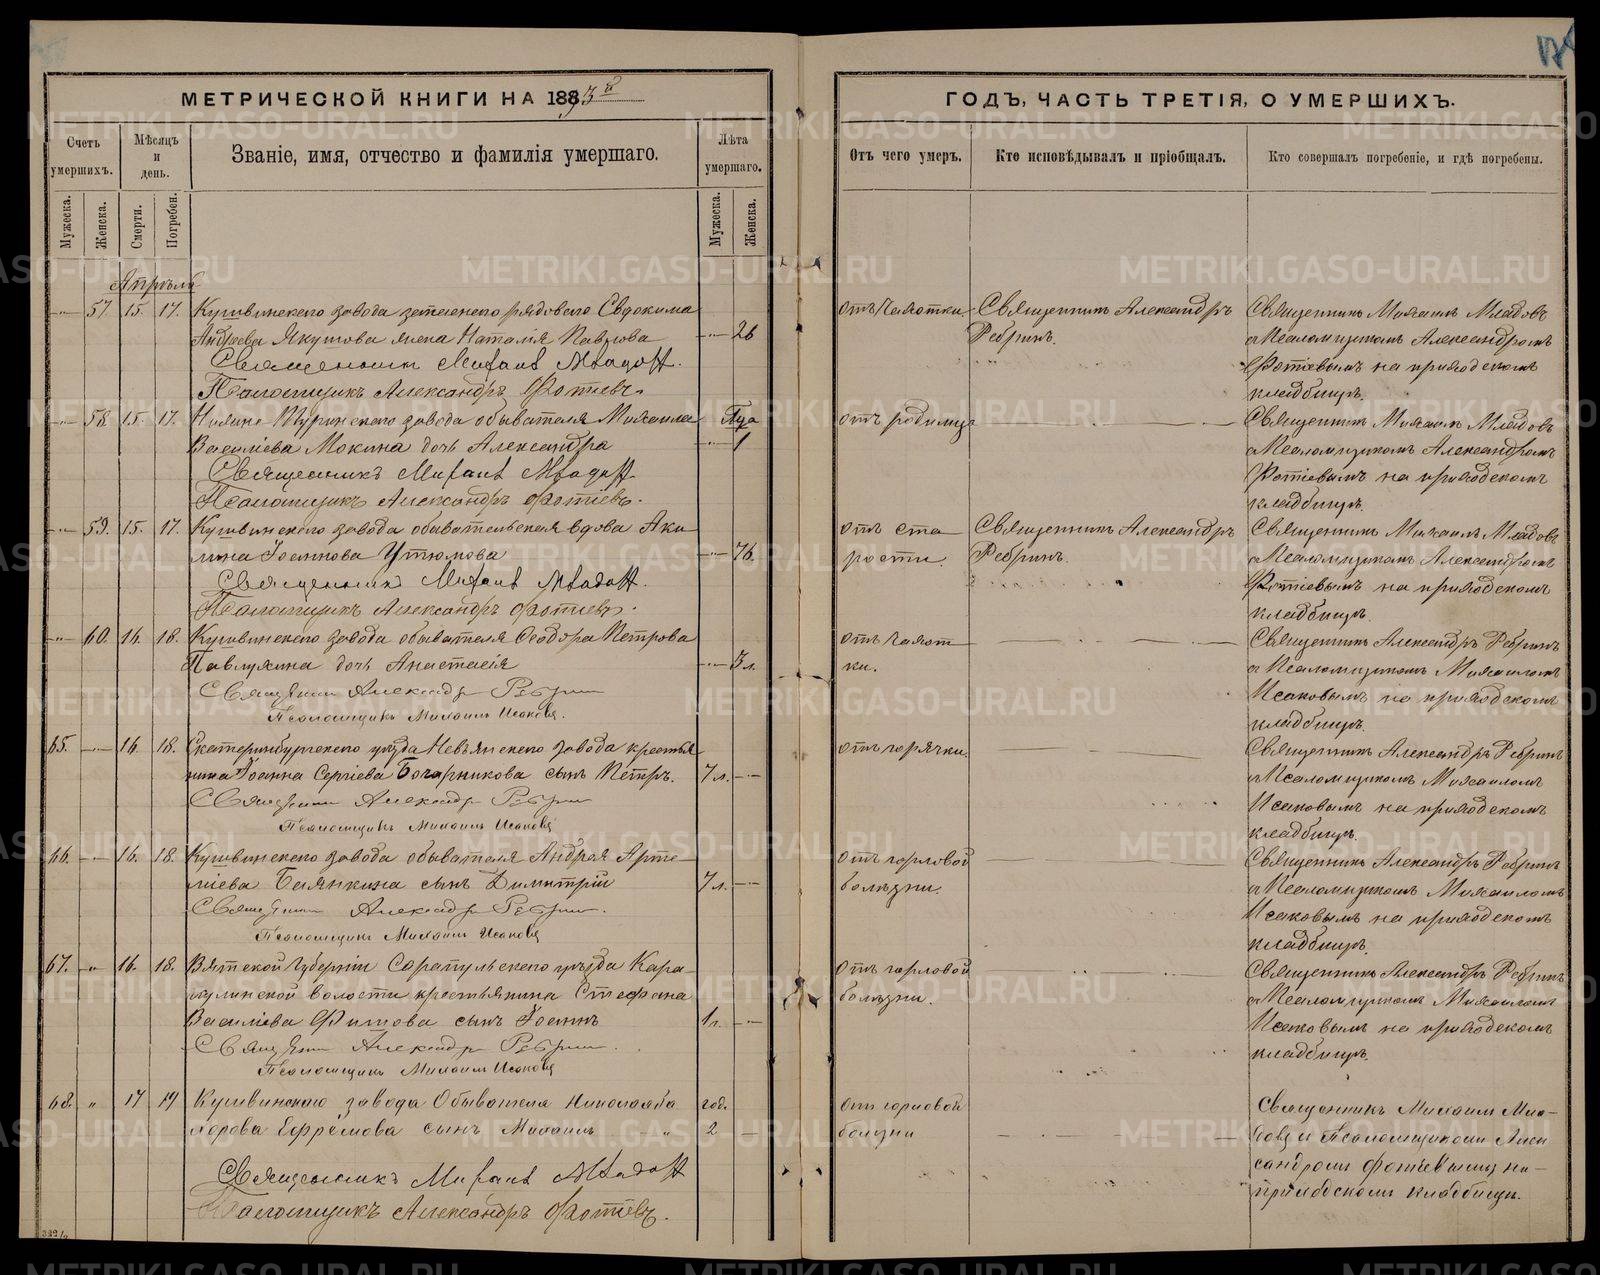 МЕТРИЧЕСКОЙ КНИГИ НА 1893й
ГОДЪ, ЧАСТЬ ТРЕТІЯ, О УМЕРШИХЪ.
Счетъ умершихъ.
Мѣсяцъ и день.
Званіе, имя, отчество и фамилія умершаго.
Лѣта умершаго.
Отъ чего умеръ.
Кто исповѣдывалъ и пріобщалъ.
Кто совершалъ погребеніе, и гдѣ погребены.
Мужеска.
Женска.
Смерти.
Погребен.
Мужеска.
Женска.
Апрѣль
57 15. 17. Кушвинскаго завода рядоваго Евдокима
Андреева Якутова жена Наталія Павлова 26
Священникъ Михаилъ Младовъ.
Псаломщикъ Александръ Фотіевъ.
отъ чахотки
Священникъ Александръ
Ребринъ.
Священникъ Михаилъ Младовъ
съ Псаломщикомъ Александромъ
Фотіевымъ на приходскомъ
кладбищѣ.
58. 15. 17. Нижне Туринскаго завода обывателя Михаила
Василіева Мокина дочь Александра 1
Священникъ Михаилъ Младовъ
Псаломщикъ Александръ Фотіевъ.
отъ родимца
Священникъ Михаилъ Младовъ
съ Псаломщикомъ Александромъ
Фотіевымъ на приходскомъ
кладбищѣ.
59. 15. 17. Кушвинскаго завода обывательская вдова Аки-
лина Іоаннова Утюмова 76.
Священникъ Михаилъ Младовъ.
Псаломщикъ Александръ Фотіевъ.
отъ ста
рости.
Священникъ Александръ
Ребринъ.
Священникъ Михаилъ Младовъ
съ Псаломщикомъ Александромъ
Фотіевымъ на приходскомъ
кладбищѣ.
60. 16. 18. Кушвинскаго завода обывателя Ѳеодора Петрова
Павлухина дочь Анастасія 3 л.
Священникъ Александръ Ребринъ
Псаломщикъ Михаилъ Исаковъ.
отъ чахот
ки.
Священникъ Александръ Ребринъ
съ Псаломщикомъ Михаиломъ
Исаковымъ на приходскомъ
кладбищѣ.
65. 16. 18. Екатеринбургскаго уѣзда Невьянскаго завода крестья
нина Іоанна Сергіева Бочарникова сынъ Петръ. 7 л.
Священникъ Александръ Ребринъ
Псаломщикъ Михаилъ Исаковъ
отъ горячки.
Священникъ Александръ Ребринъ
съ Псаломщикомъ Михаиломъ
Исаковымъ на приходскомъ
кладбищѣ.
66. 16. 18. Кушвинскаго завода обывателя Андрея Арте-
міева Баянкина сынъ Димитрій 7 л.
Священникъ Александръ Ребринъ.
Псаломщикъ Михаилъ Исаковъ
отъ горловой
болѣзни.
Священникъ Александръ Ребринъ
съ Псаломщикомъ Михаиломъ
Исаковымъ на приходскомъ
кладбищѣ.
67. 16. 18. Вятской губерніи Сарапульскаго уѣзда Кара-
кулинской волости крестьянина Стефана
Василіева Фитова сынъ Іоаннъ 1 г.
Священникъ Александръ Ребринъ.
Псаломщикъ Михаилъ Исаковъ
отъ горловой
болѣзни.
Священникъ Александръ Ребринъ
съ Псаломщикомъ Михаиломъ
Исаковымъ на приходскомъ
кладбищѣ.
68. 17 19 Кушвинскаго завода Обывателя год.
Ефремова сынъ Михаилъ 2
Священникъ Михаилъ Младовъ
Псаломщикъ Александръ Фотіевъ.
отъ горловой
болѣзни
Священникъ Михаилъ Мла-
довъ и Псаломщикомъ Алек
сандромъ Фотіевымъ на-
приходскомъ кладбищѣ.
METRIKI.GASO-URAL.RU